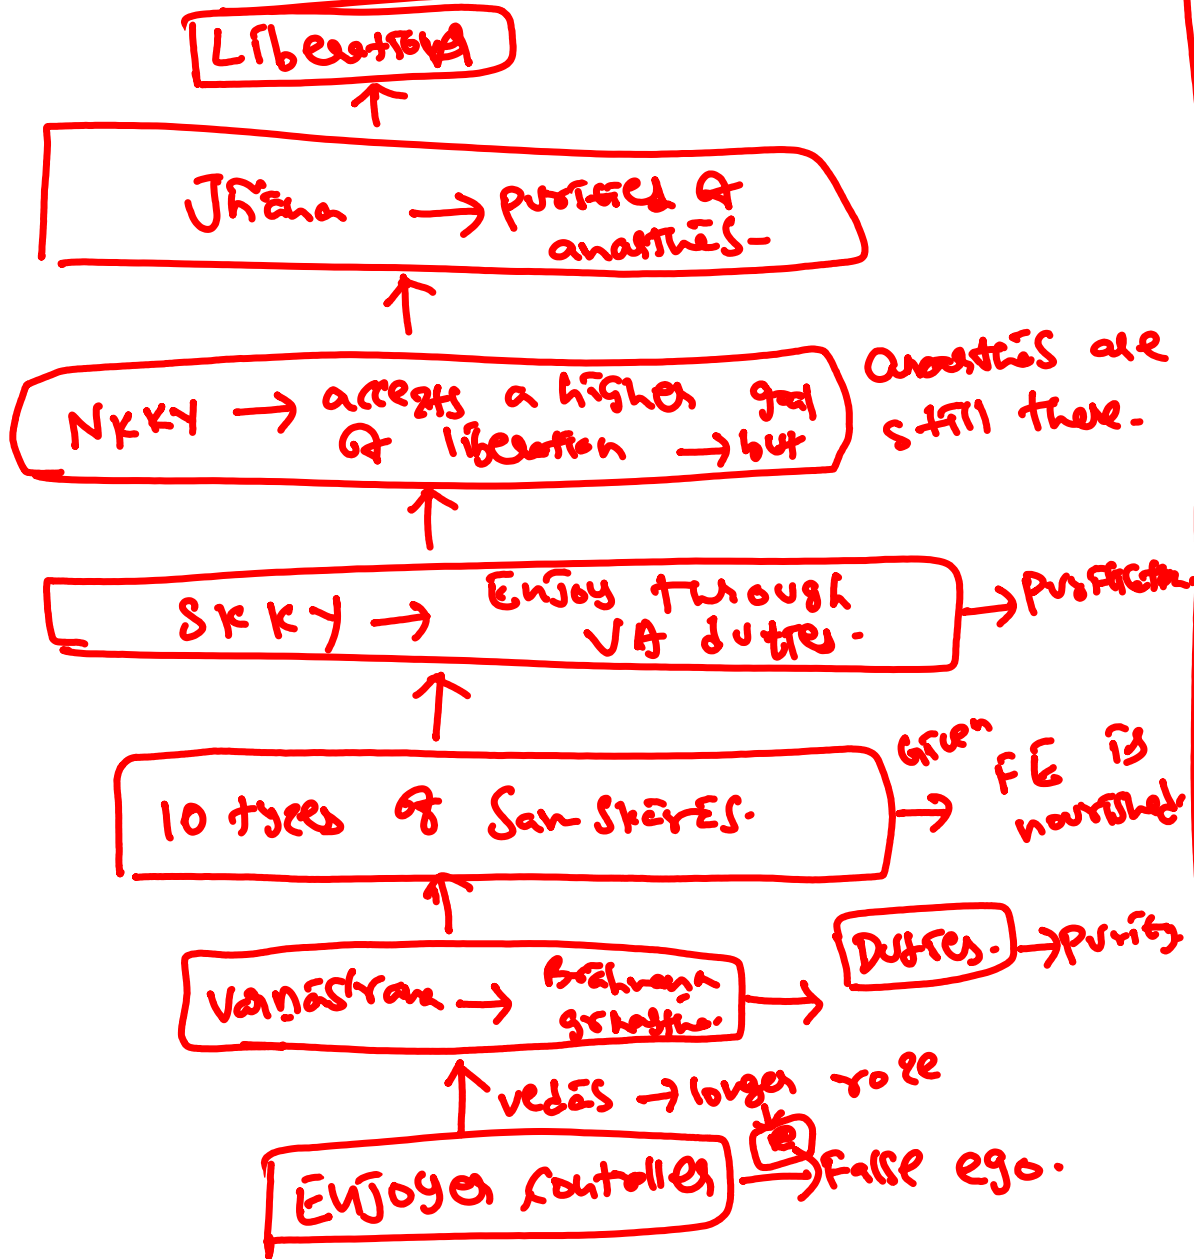 Liberation
Jñāna → purified of
anarthās-
NKKY → accepts a higher goal
of liberation → but
Anarthās are
still there.
SKKY → Enjoy through
VA duties.
→ purification
10 types of Samskārās.
Given
→ FE is
nourished.
Varnāśrama → Brāhmana
gṛhastha. →
Duties. → purity
vedās → longer rope
Enjoyer controller → False ego.